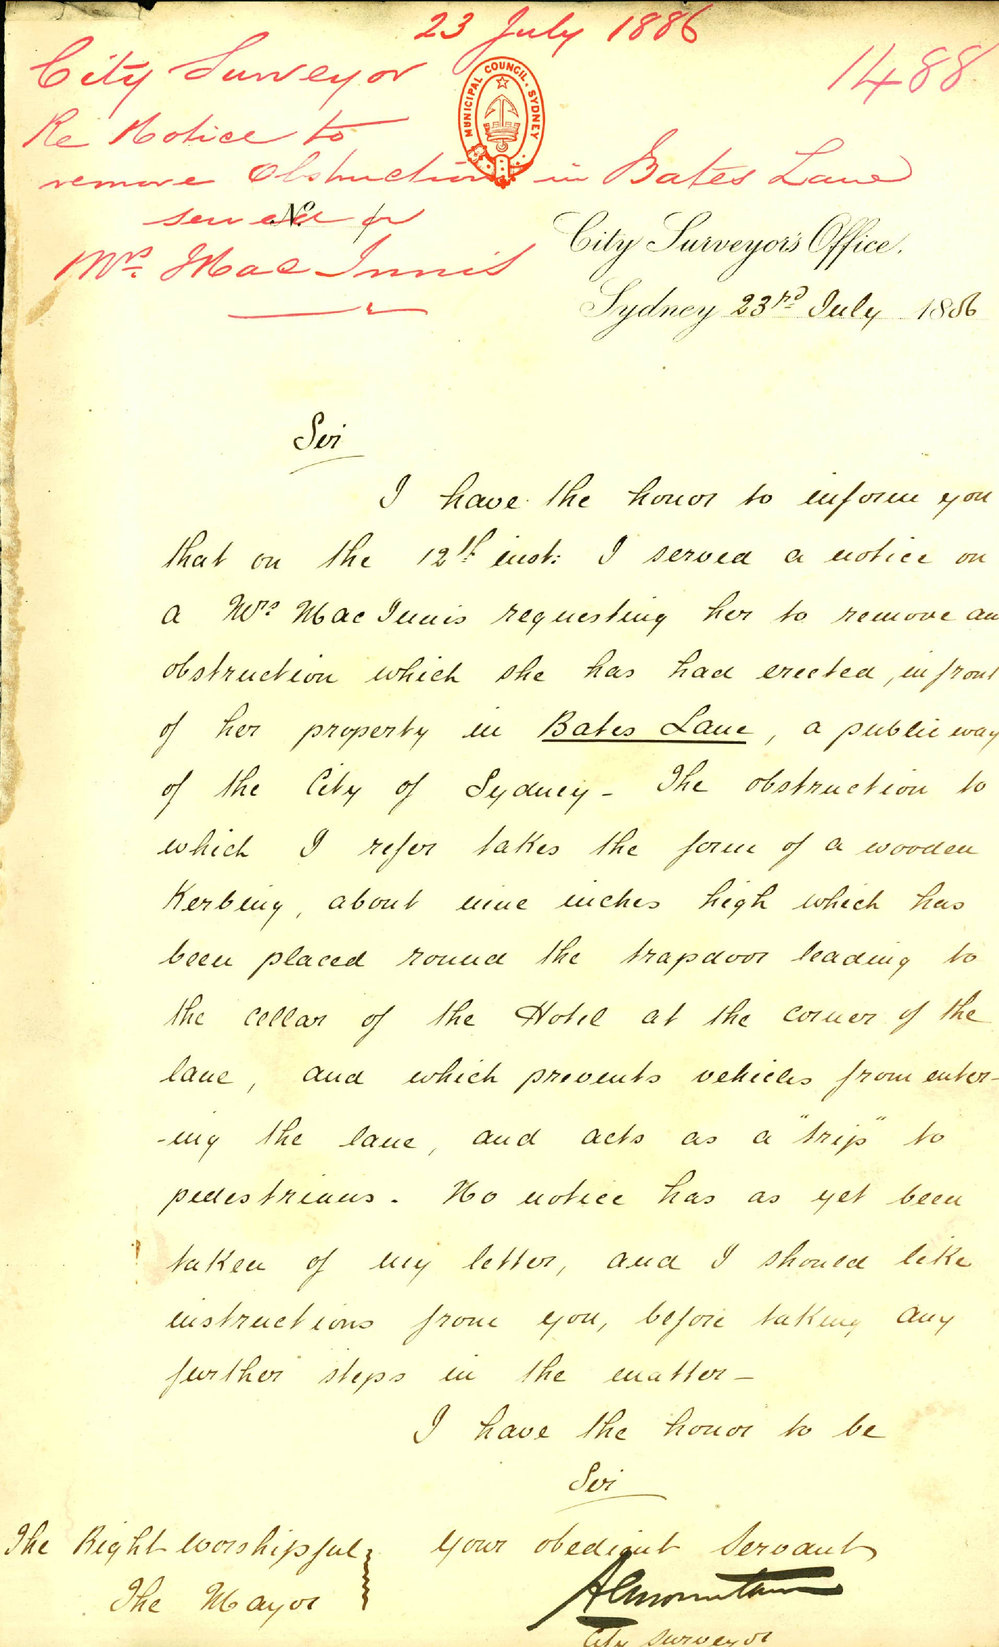 23 July 1886
1488
City Surveyor
Re Notice to
remove Obstruction in Bates Lane
served on
Mrs. Mac Innis
MUNICIPAL COUNCIL. SYDNEY
No.
City Surveyor's Office.
Sydney 23rd July 1886
Sir
I have the honor to inform you
that on the 12th inst: I served a notice on
a Mrs Mac Innis requesting her to remove an
obstruction which she has had erected, in front
of her property in Bates Lane, a public way
of the City of Sydney - The obstruction to
which I refer takes the form of a wooden
Kerbing, about nine inches high which has
been placed round the trapdoor leading to
the cellar of the Hotel at the corner of the
lane, and which prevents vehicles from enter-
-ing the lane, and acts as a "trip" to
pedestrians. No notice has as yet been
taken of my letter, and I should like
instructions from you, before taking any
further steps in the matter -
I have the honor to be
Sir
Your obedient Servant
The Right Worshipful
The Mayor
City Surveyor